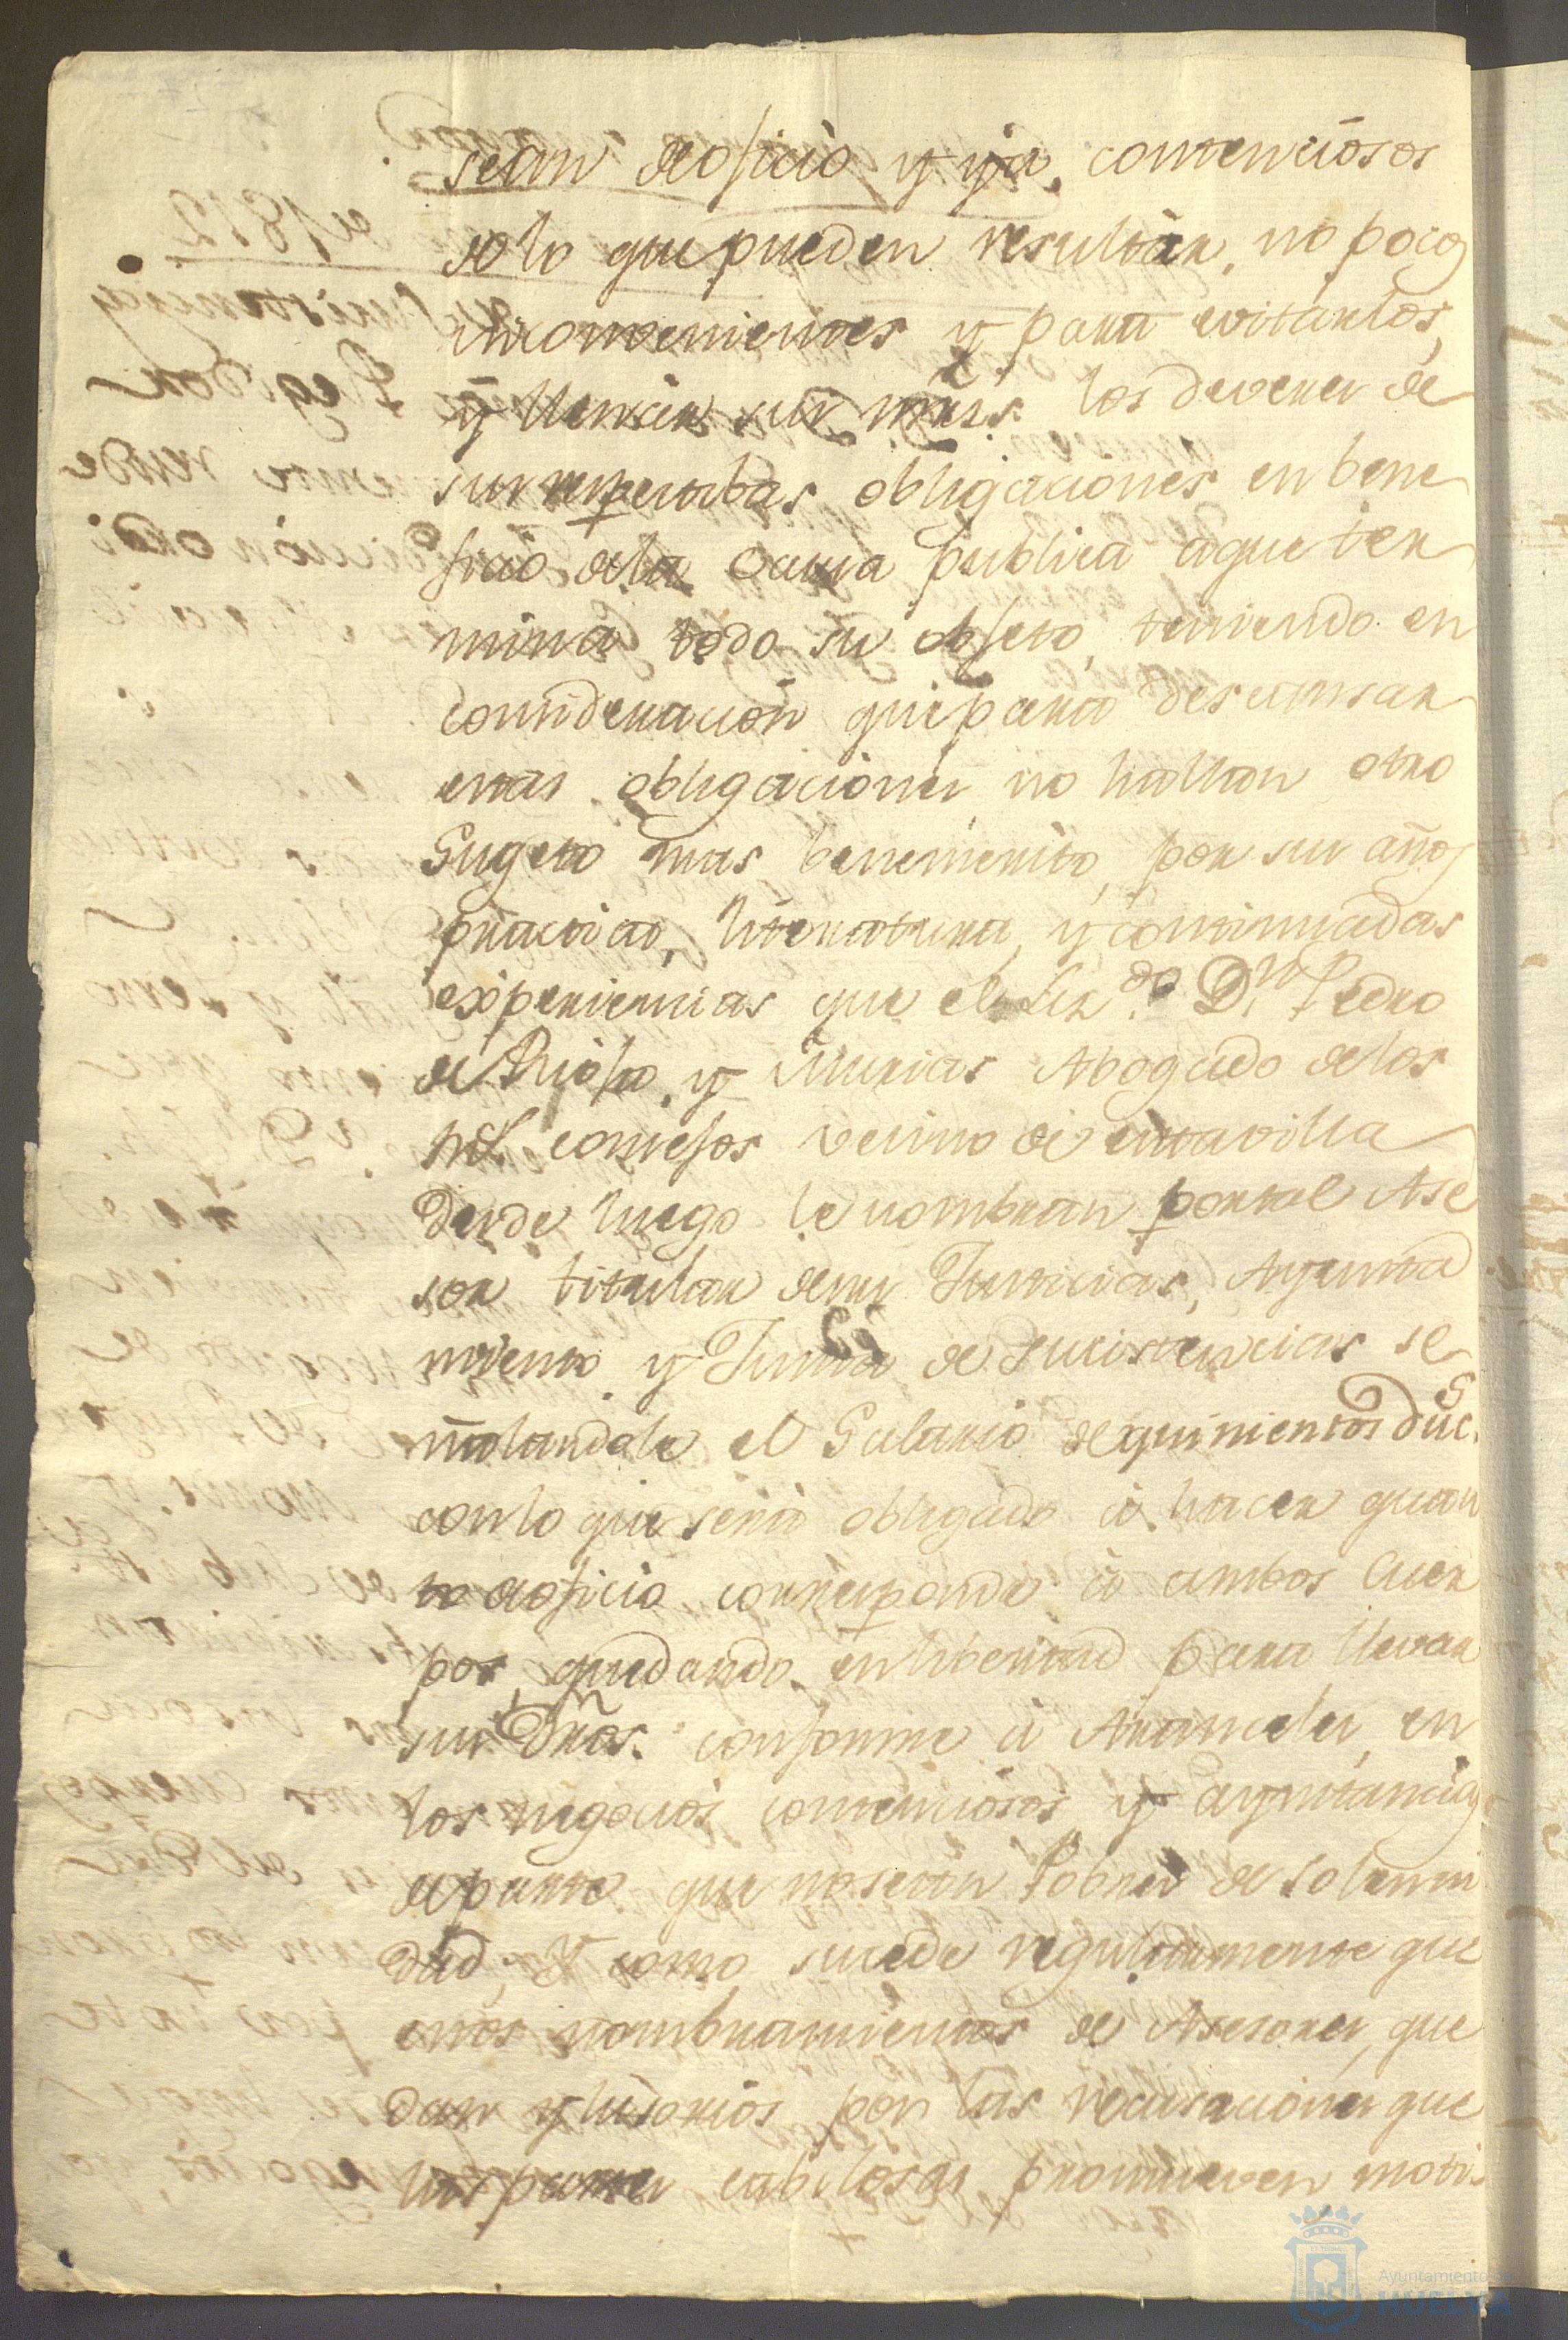 sean deoficio y ya, contenciosos
solo que pueden resultar, no pocos
inconvenientes y para evitarlos,
y llenar sus mrs. los deveres de
sus respectibas obligaciones en bene
ficio dela causa publica aque ter
mina todo su objeto, teniendo en
consideracion que para descansar
estas obligaciones no hallan otro
Sugeto mas benemerito, por sus años
practica, literatura, y continuadas
experiencias que el Liz.do D.n Pedro
de Rioja y Murias Abogado delos
Rs. consejos vecino de estavilla
desde luego le nombran portal Ase
sor titular desus Justicias, Ayunta
miento y Junta de Sucistencias se
ñalandole el Salario dequinientos duc.s
conlo que será obligado á hacer quan
to deoficio corresponda á ambos Cuer
pos, quedando enlibertad para llevar
sus Dros. conforme á Aranceles, en
los negocios contenciosos y aynstancia
departe que nosean Pobres de Solemni
dad, Y como sucede regularmente que
estos nombramientos de Asesores, que
dan ylusorios por las recusaciones que
las partes cabilosas promueven moti
Ayuntamiento de
HUELVA